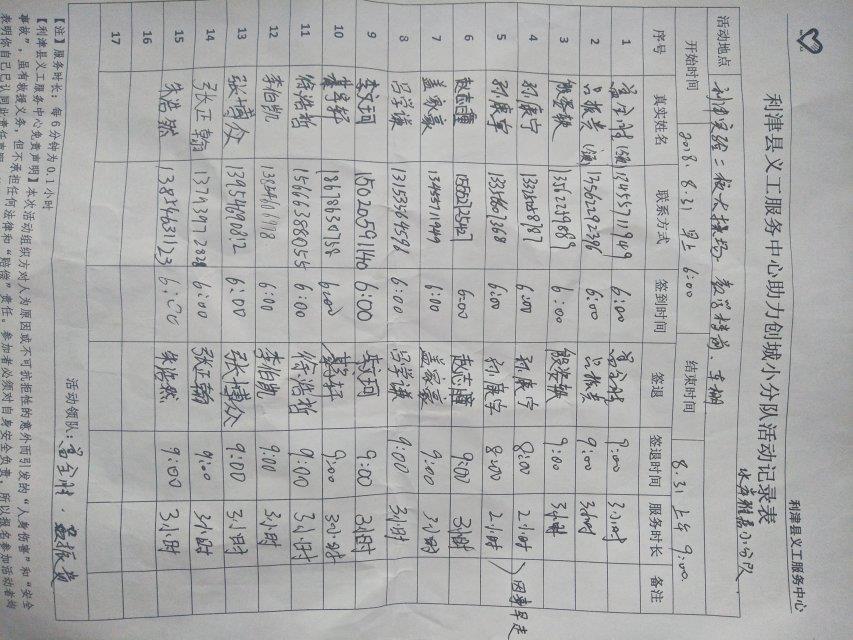 利津县义工服务中心
利津县义工服务中心助力创城小分队活动记录表
活动地点 利津实验二校大操场、教学楼前、车棚
开始时间 2018.8.31 早上 6:00 结束时间 8.31 上午 9:00
序号 真实姓名 联系方式 签到时间 签退 签退时间 服务时长 备注
1 6:00 9:00 3小时
2 吕振贵 13562292396 6:00 吕振贵 9:00 3小时
3 6:00 9:00 3小时
4 孙康宁 6:00 孙康宁 8:00 2小时
5 孙康宇 6:00 孙康宇 8:00 2小时 因事早走
6 赵志疃 6:00 赵志疃 9:00 3小时
7 盖家豪 6:00 盖家豪 9:00 3小时
8 吕学谦 13153584598 6:00 吕学谦 9:00 3小时
9 李文珂 15020591140 6:00 李文珂 9:00 3小时
10 18678630758 6:00 9:00 3小时
11 徐浩哲 15663388055 6:00 徐浩哲 9:00 3小时
12 李怡凯 6:00 李怡凯 9:00 3小时
13 张博众 13954690812 6:00 张博众 9:00 3小时
14 张正翰 13793972828 6:00 张正翰 9:00 3小时
15 朱浩然 13854631123 6:00 朱浩然 9:00 3小时
16
17
活动领队:
【注】服务时长:每6分钟为0.1小时
【利津县义工服务中心免责声明】本次活动组织方对人为原因或不可抗拒性的意外而引发的“人身伤害”和“安全
事故”,虽有救援义务,但不承担任何法律和“赔偿”责任。参加者必须对自身安全负责,所以报名参加活动者均
表明你自己已认同此责任声明